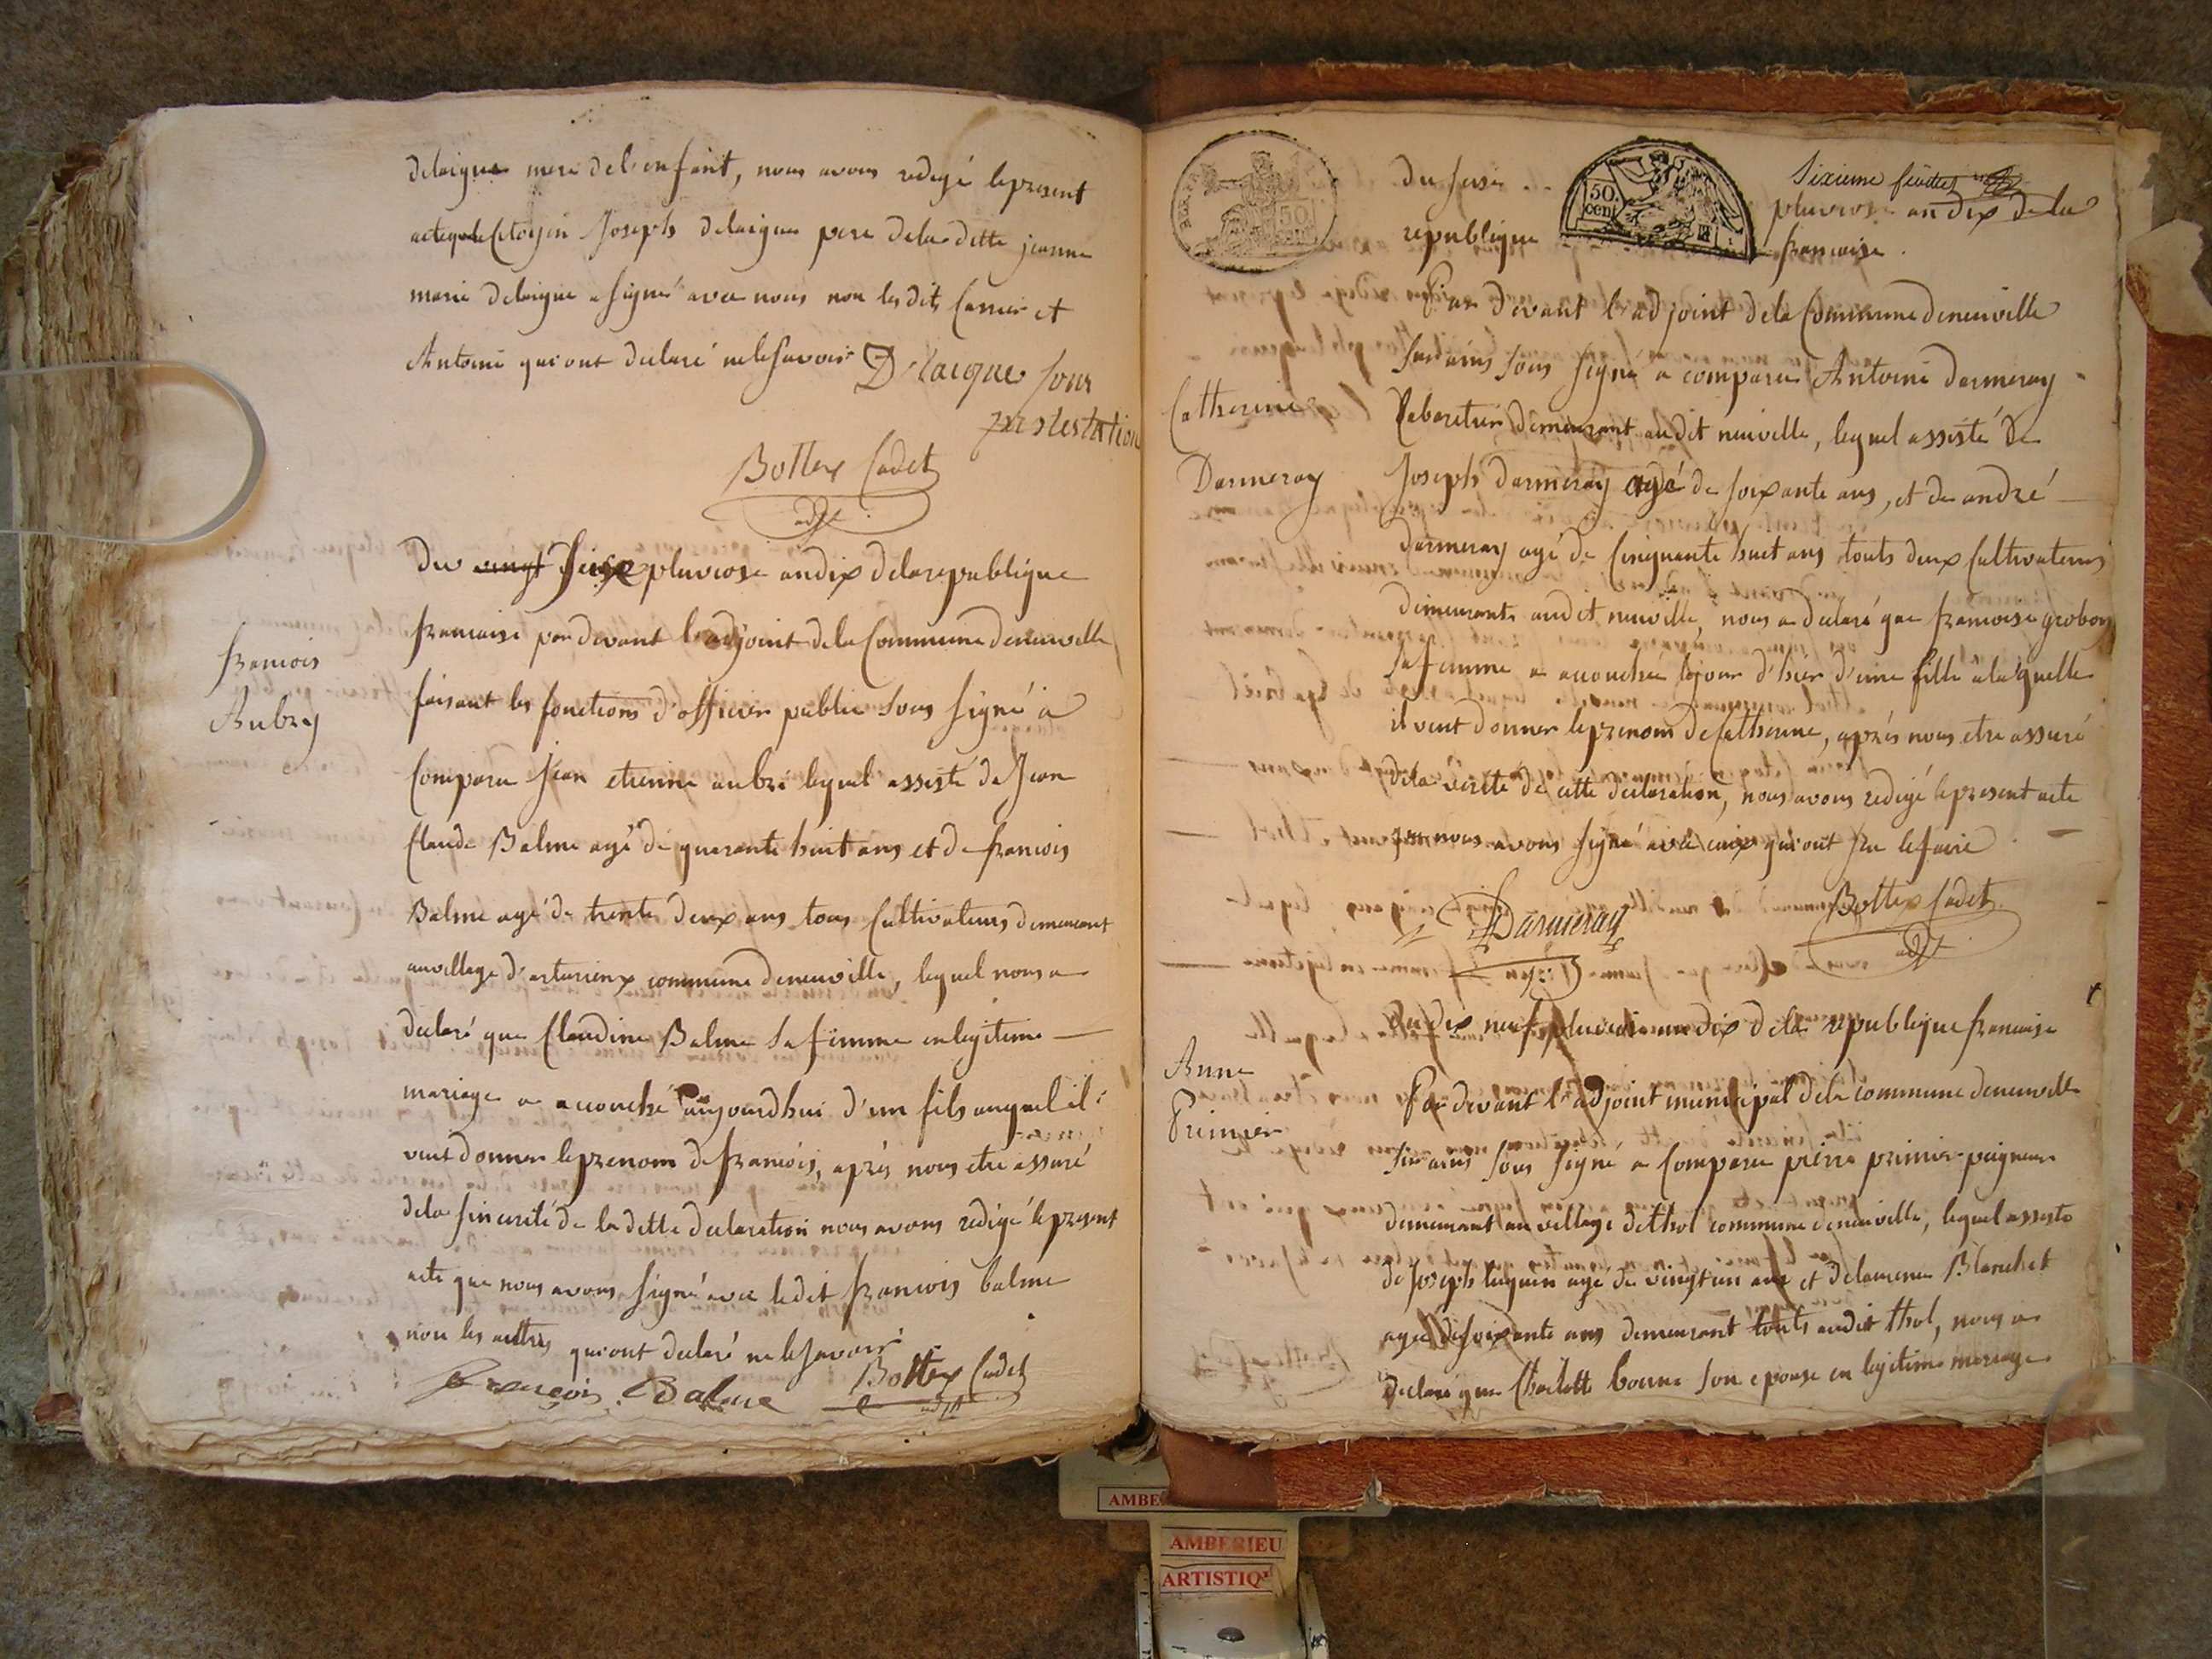 delaigue mere de l'enfant, nous avons redigé le present
acte que le Citoyen Joseph delaigue pere de la ditte jeanne
marie delaigue a signé avec nous non les dits Carrier et
Antoine qui ont declaré ne le savoir Delaigue sous
protestation
Bottex Cadet
adjt
françois
Aubry
Du vingt seize pluviose an dix de la republique
francaise par devant l'adjoint de la Commune de neuville
faisant les fonctions d'officier public sous signé a
Comparu Jean etienne aubri lequel assisté de Jean
Claude Balme agé de quarante huit ans et de francois
Balme agé de trente deux ans tous Cultivateurs demeurant
au village d'arturieux commune de neuville, lequel nous a
declaré que Claudine Balme sa femme en legitime
mariage a accouché aujourdhui d'un fils auquel il
veut donner le prenom de francois, aprés nous etre assuré
de la sincerité de la ditte declaration nous avons redigé le present
acte que nous avons signé avec le dit francois balme
non les autres qui ont declaré ne le savoir
François Balme Bottex Cadet
adjt
50
50
cent
Sixieme feuillet
du seize pluviose an dix de la
republique francaise
Catherine
Darmeray
Par devant l'adjoint de la Commune de neuville
sur ains sous signé a comparu Antoine darmeray
Cabaretier demeurant au dit neuville, lequel assisté de
Joseph darmeray agé de soixante ans, et de andré
darmeray agé de Cinquante huit ans touts deux Cultivateurs
demeurants au dit neuville, nous a declaré que francoise grobon
sa femme a accouchée le jour d'hier d'une fille a la quelle
il veut donner le prenom de Catherine, aprés nous etre assuré
de la verité de cette declaration, nous avons redigé le present acte
que nous avons signé avec ceux qui ont su le faire
Darmeray Bottex Cadet
adjt
Anne
Primier
Du dix neuf pluviose an dix de la republique francaise
Par devant l'adjoint municipal de la commune de neuville
sur ains sous signé a Comparu pierre primier peigneur
demeurant au village de thol commune de neuville, lequel assisté
de Joseph luquin agé de vingt un ans et de laurence Blanchet
agée de soixante ans demeurant touts au dit thol, nous a
declaré que Charlotte bonne son epouse en legitime mariage
AMBE
AMBERIEU
ARTISTIQ